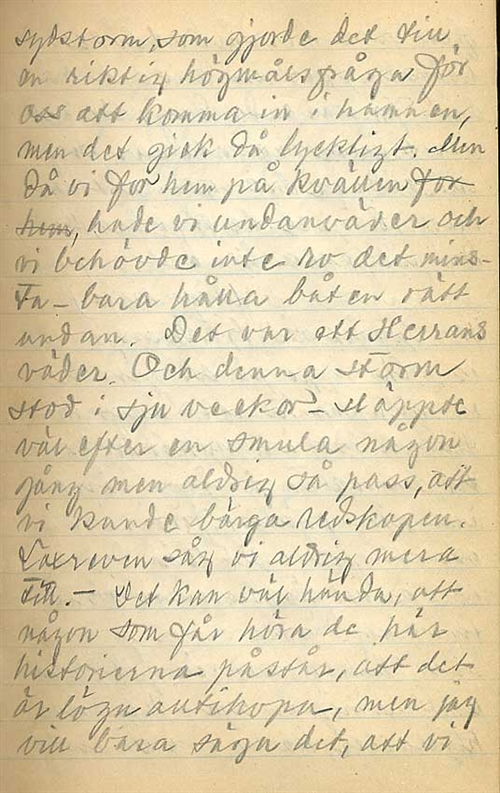 sydstorm, som gjorde det till
en riktig högmålsfråga för
oss att komma in i hamnen,
men det gick då lyckligt. Men
då vi for hem på kvällen for
hem, hade vi undanväder och
vi behövde inte ro det mins-
ta – bara hålla båten rätt
undan. Det var ett Herrans
väder. Och denna storm
stod i sju veckor – släppte
väl efter en smula någon
gång men aldrig så pass, att
vi kunde bärga redskapen.
Laxreven såg vi aldrig mera
till. – Det kan väl hända, att
någon som får höra de här
historierna påstår, att det
är lögn alltihopa, men jag
vill bara säga det, att vi